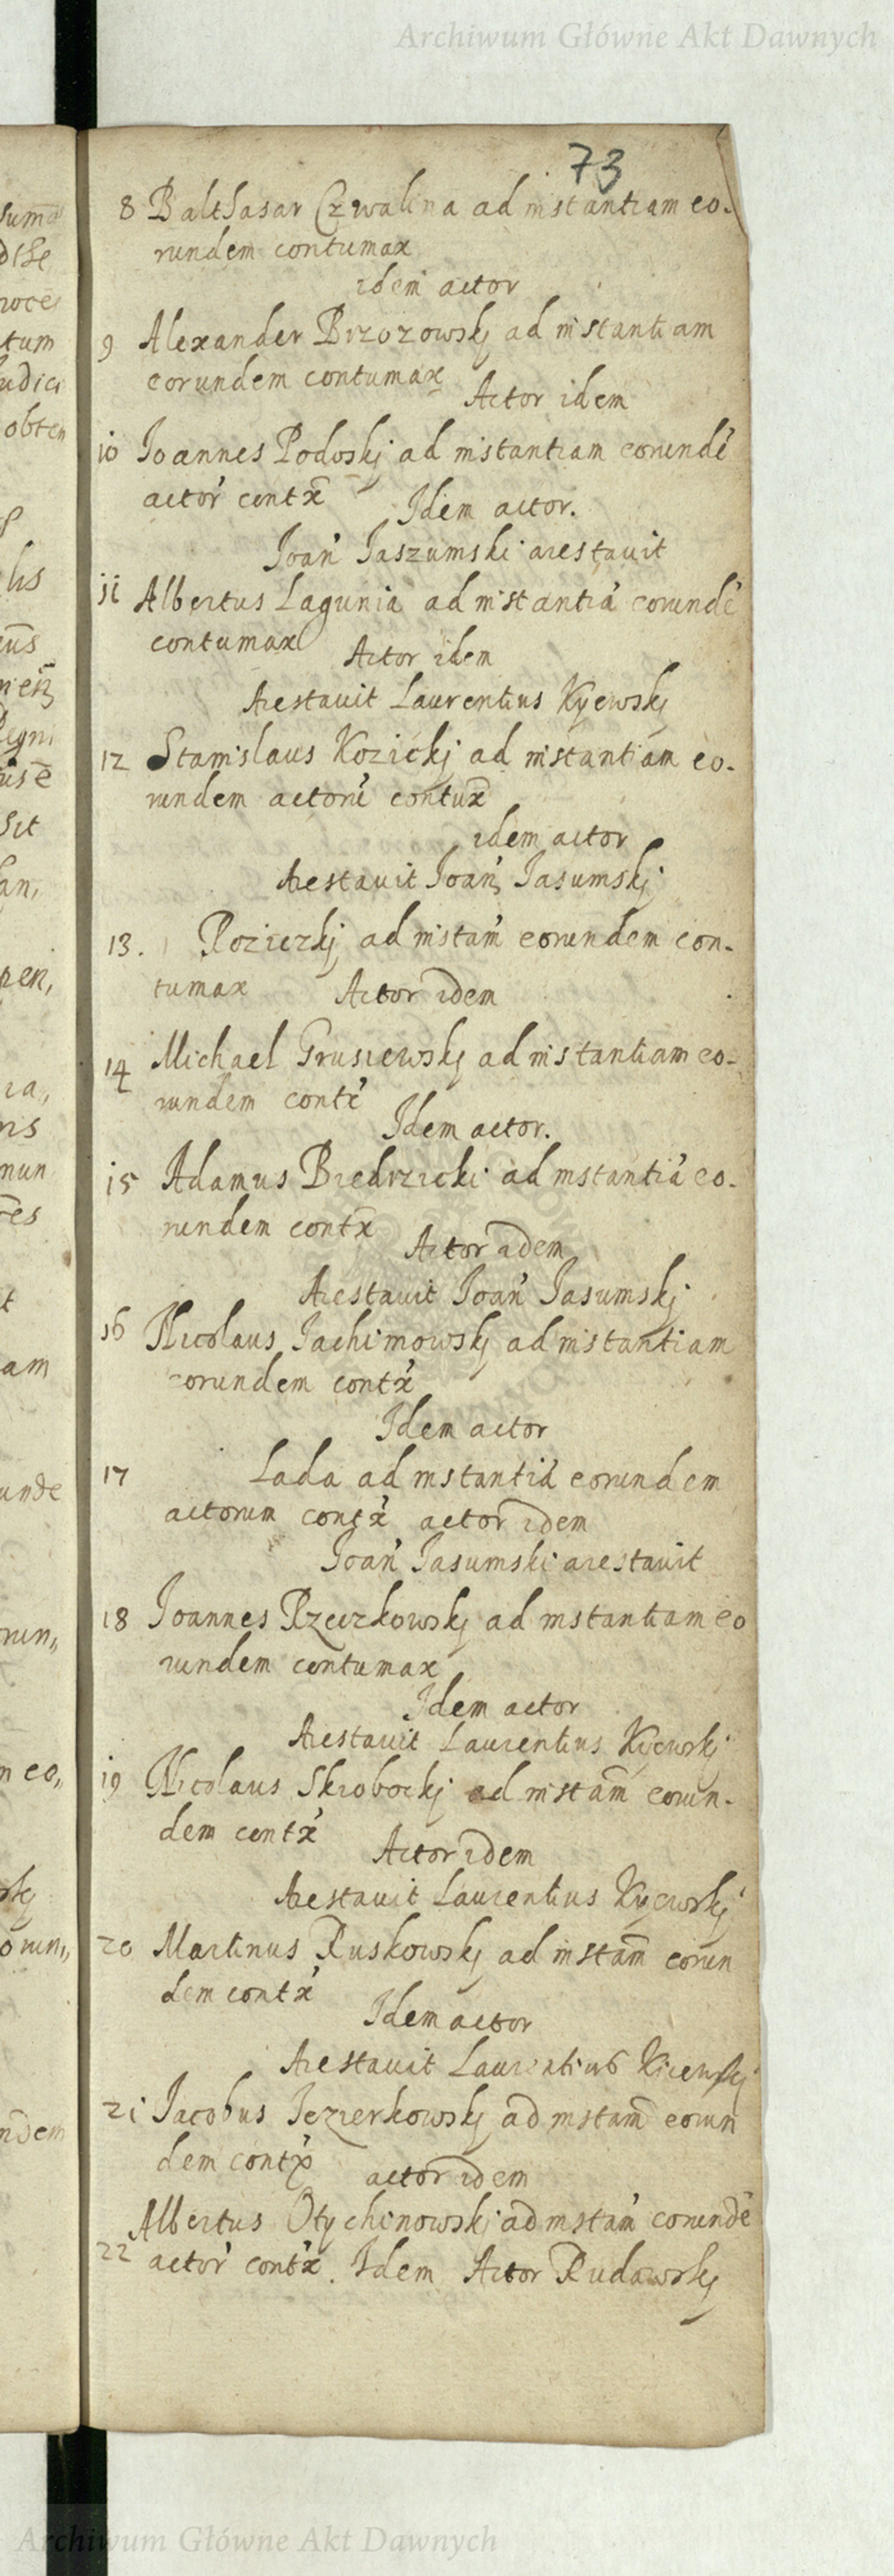 Archiwum Główne Akt Dawnych
73
8 Balthasar Czwalina ad instantiam eo-
rundem contumax
idem actor
9 Alexander Brzozowskj ad instantiam
eorundem contumax
Actor idem
10 Joannes Podoskj ad instantiam eorundē
actor̃ contx̃ Idem actor.
Joan̄ Jaszumski arestauit
11 Albertus Lagunia ad instantiā eorundē
contumax Actor idem
Arestauit Laurentius Kyewskj
12 Stanislaus Kozickj ad instantiam eo-
rundem actorū contux̃
idem actor
Arestauit Joan̄ Jasumskj
13. Roziczkj ad instam̃ eorundem con-
tumax Actor idem
14 Michael Grusiewskj ad instantiam eo-
rundem contx̃
Idem actor.
15 Adamus Biedrzicki ad instantiā eo-
rundem contx̃
Actor idem
Arestauit Joan̄ Jasumskj
16 Nicolaus Jachimowskj ad instantiam
eorundem contx̃
Idem actor
17 Lada ad instantiā eorundem
actorum contx̃ actor idem
Joan̄ Jasumski arestauit
18 Joannes Rzeczkowskj ad instantiam eo
rundem contumax
Idem actor
Arestauit Laurentius Kyewskj
19 Nicolaus Skrobockj ad instam̃ eorun-
dem contx̃
Actor idem
Arestauit Laurentius Kyewskj
20 Martinus Ruskowskj ad instam̃ eorun
dem contx̃
Idem actor
Arestauit Laurentius Kiiewskj
21 Jacobus Jezierkowskj ad instam̃ eorun
dem contx̃ actor idem
Albertus Otychinowskj ad instam̃ eorundē
22 actor̃ contx̃. Idem Actor Rudawskj
Archiwum Główne Akt Dawnych